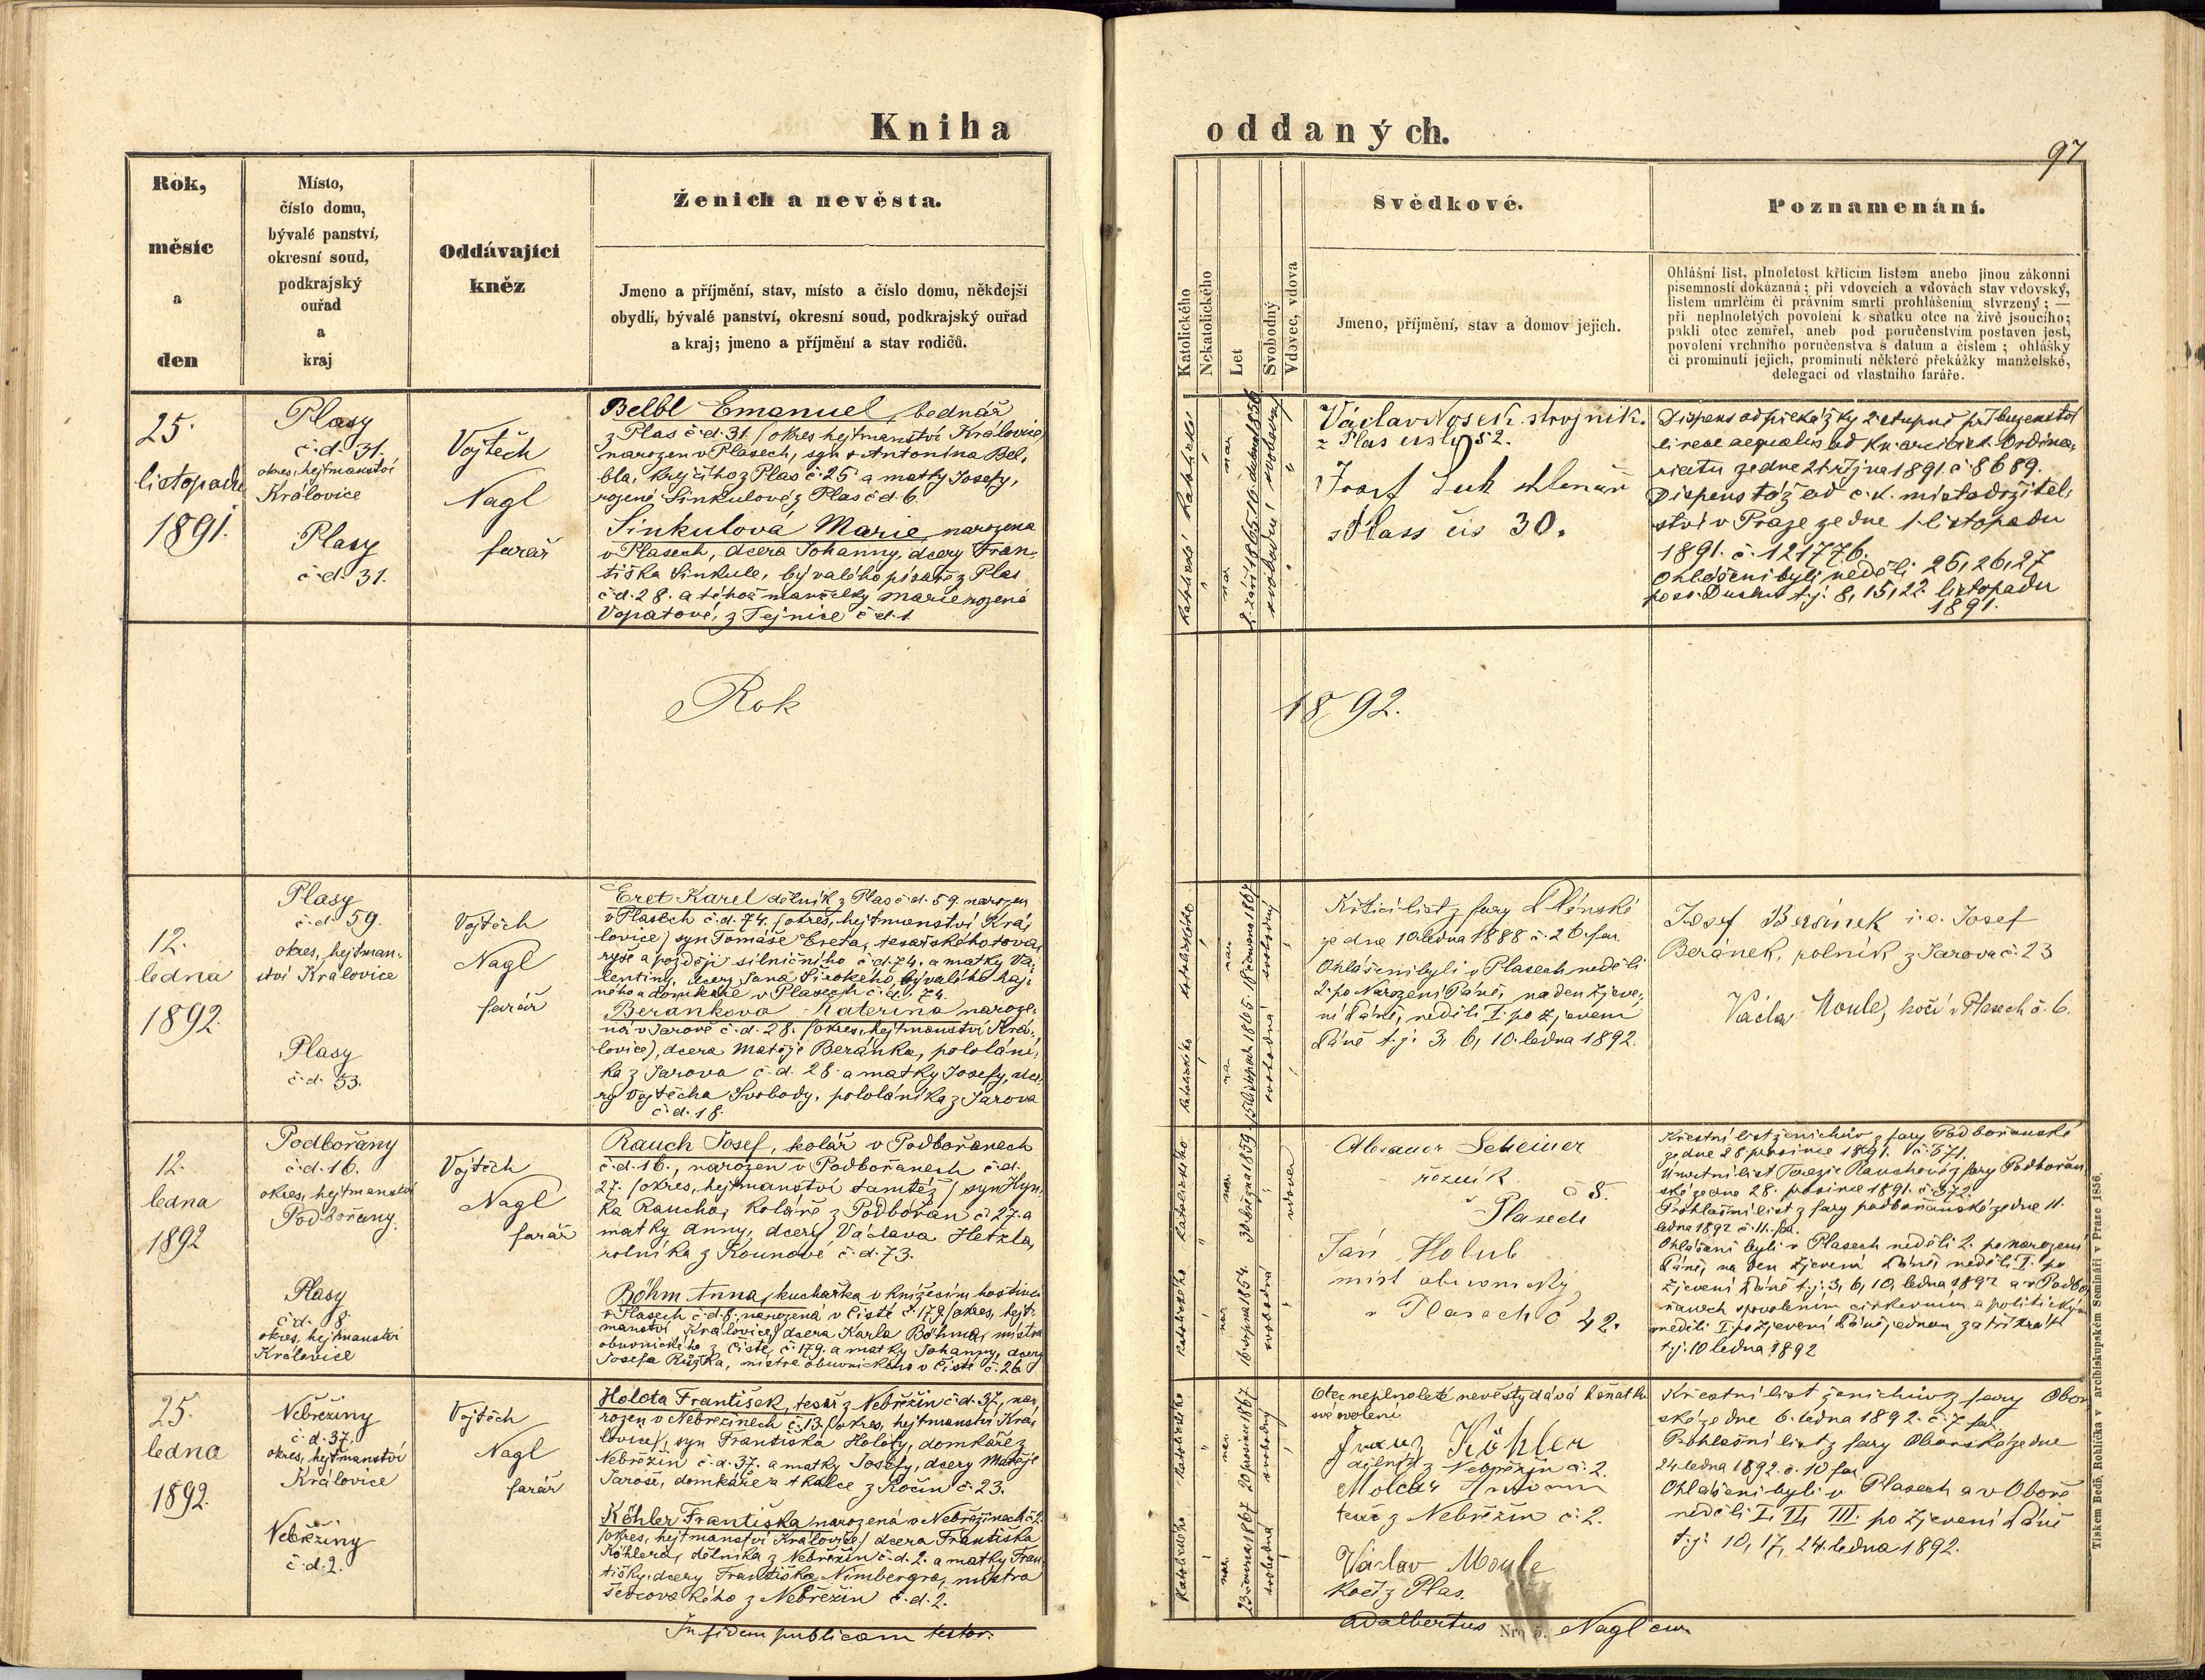 Kniha
oddaných.
97
Rok,
měsíc
a
den
Místo,
číslo domu,
bývalé panství,
okresní soud,
podkrajský
ouřad
a
kraj
Oddávající
kněz
Ženich a nevěsta.
Jmeno a příjmění, stav, místo a číslo domu, někdejší
obydlí, bývalé panství, okresní soud, podkrajský ouřad
a kraj; jmeno a příjmění a stav rodičů.
Katolického
Nekatolického
Let
Svobodný
Vdovec, vdova
Svědkové.
Jmeno, příjmění, stav a domov jejich.
Poznamenání.
Ohlášní list, plnoletost křticím listem anebo jinou zákonní
písemností dokázaná; při vdovcích a vdovách stav vdovský,
listem umrlčím či právním smrti prohlášením stvrzený; —
při neplnoletých povolení k sňatku otce na živě jsoucího;
pakli otec zemřel, aneb pod poručenstvím postaven jest,
povolení vrchního poručenstva s datum a číslem; ohlášky
či prominutí jejich, prominutí některé překážky manželské,
delegací od vlastního faráře.
25.
listopadu
1891.
Plasy
č.d. 31.
okres, hejtmanství
Královice
Plasy
č.d. 31.
Vojtěch
Nagl
farář
Belbl Emanuel, bednář
z Plas č.d. 31. (okres hejtmanství Královice)
narozen v Plasech, syn + Antonína Bel-
bla, krejčího z Plas č. 25 a matky Josefy,
rozené Sinkulové z Plas č.d. 6.
Sinkulová Marie, narozena
v Plasech, dcera Johanny, dcery Fran-
tiška Sinkule, bývalého písaře z Plas
č.d. 28. a téhož manželky Marie rozené
Vopatové, z Tejnice č.d. 1.
Václav Nosek strojník.
z Plas číslo 52.
Josef
z Plass čis 30.
Dispens od překážky 2. stupně příbuzenství
lineae aequalis od kn. arcibisk. Ordina-
riatu ze dne 21. října 1891. č. 8689.
Dispens též od c.k. místodržitel-
ství v Praze ze dne 1. listopadu
1891. č. 121776.
Ohlášeni byli neděli 25, 26, 27
po sv. Duchu t.j. 8, 15, 22. listopadu
1891.
Rok
1892.
12.
ledna
1892.
Plasy
č.d. 59.
okres, hejtman-
ství Královice
Plasy
č.d. 53.
Vojtěch
Nagl
farář
Eret Karel dělník z Plas č.d. 59. narozen
v Plasech č.d. 74. (okres, hejtmanství Krá-
lovice) syn Tomáše Ereta, tesařského tova-
ryše a později silničního č.d. 74. a matky Va-
lentiny, dcery Jana Širokého, bývalého haj-
ného a domkáře v Plasech č.d. 74.
Beránkova Kateřina naroze-
ná v Jarově č.d. 28. (okres, hejtmanství Krá-
lovice), dcera Matěje Beránka, pololání-
ka z Jarova č.d. 28. a matky Josefy, dce-
ry Vojtěcha Svobody, pololáníka z Jarova
č.d. 18.
Křticí list z fary Plénské
ze dne 10. ledna 1888 č. 26. far.
Ohlášeni byli v Plasech neděli
2. po Narození Páně, na den zjeve-
ní Páně, neděli I. po zjevení
Páně t.j. 3, 6, 10. ledna 1892.
Josef Beránek i.e. Josef
Beránek, rolník z Jarova č. 23
Václav Moule, kočí v Plasech č. 6.
12.
ledna
1892
Podbořany
č.d. 16.
okres, hejtmanství
Podbořany.
Plasy
č.d. 8.
okres, hejtmanství
Královice
Vojtěch
Nagl
farář
Rauch Josef, kolář v Podbořanech
č.d. 16., narozen v Podbořanech č.d.
27. (okres, hejtmanství tamtéž) syn Hyn-
ka Raucha, koláře z Podbořan č. 27. a
matky Anny, dcery Václava Hetzla,
rolníka z Kounova č.d. 73.
Böhm Anna, kuchařka v knížecím hostinci
v Plasech č.d. 8. narozená v Čisté č. 179. (okres, hejt-
manství Královice) dcera Karla Böhma, mistra
obuvnického z Čisté, č. 179. a matky Johanny, dcery
Josefa Růžka, mistra obuvnického v Čisté č. 26.
Alexander Scheiner
řezník
č 8.
v Plasech
Jan Holub
mist obuvnický
v Plasech č 42.
Křestní list ženichův z fary Podbořanské
ze dne 28 prosince 1891. č. 571.
Úmrtní list Terezie Rauchové z fary Podbořan-
ské ze dne 28. prosince 1891. č. 572.
Prohlašní list z fary podbořanské ze dne 11.
ledna 1892 č. 11. far.
Ohlášeni byli v Plasech neděli 2. po narození
Páně, na den zjevení Páně, neděli I. po
zjevení Páně t.j. 3, 6, 10, ledna 1892 a v Podbo-
řanech s povolením církevním a politickým
neděli I. po zjevení Páně jednou za třikrát
t.j. 10 ledna 1892
25.
ledna
1892.
Nebřeziny
č.d. 37.
okres, hejtmanství
Královice
Nebřeziny
č.d. 2.
Vojtěch
Nagl
farář
Holota František, tesař z Nebřezin č.d. 37., na-
rozen v Nebřezinech č. 13. (okres, hejtmanství Krá-
lovice), syn Františka Holoty, domkáře z
Nebřezin č.d. 37. a matky Josefy, dcery Matěje
Jaroše, domkáře a tkalce z Kočín č. 23.
Köhler Františka narozená v Nebřezinech č. 2.
(okres, hejtmanství Královice) dcera Františka
Köhlera, dělníka z Nebřezin č.d. 2. a matky Fran-
tišky, dcery Františka Nimbergra, mistra
ševcovského z Nebřezin č.d. 2.
Otec neplnoleté nevěsty dává k sňatku
své svolení
Köhler
dělník z Nebřezin č. 2.
tesař z Nebřezin č. 2.
Václav Moule
Kočí z Plas.
Křestní list ženichův z fary Obor-
ské ze dne 6. ledna 1892. č. 7 far.
Prohlašní list z fary Oborské ze dne
24. ledna 1892. č. 10 far.
Ohlášeni byli v Plasech a v Oboře
neděli I. II. III. po zjevení Páně
t.j. 10, 17, 24. ledna 1892.
In fidem publicam testor.
Adalbertus Nagl
Tiskem Bedř. Rohlíčka v arcibiskupském Semináři v Praze 1856.